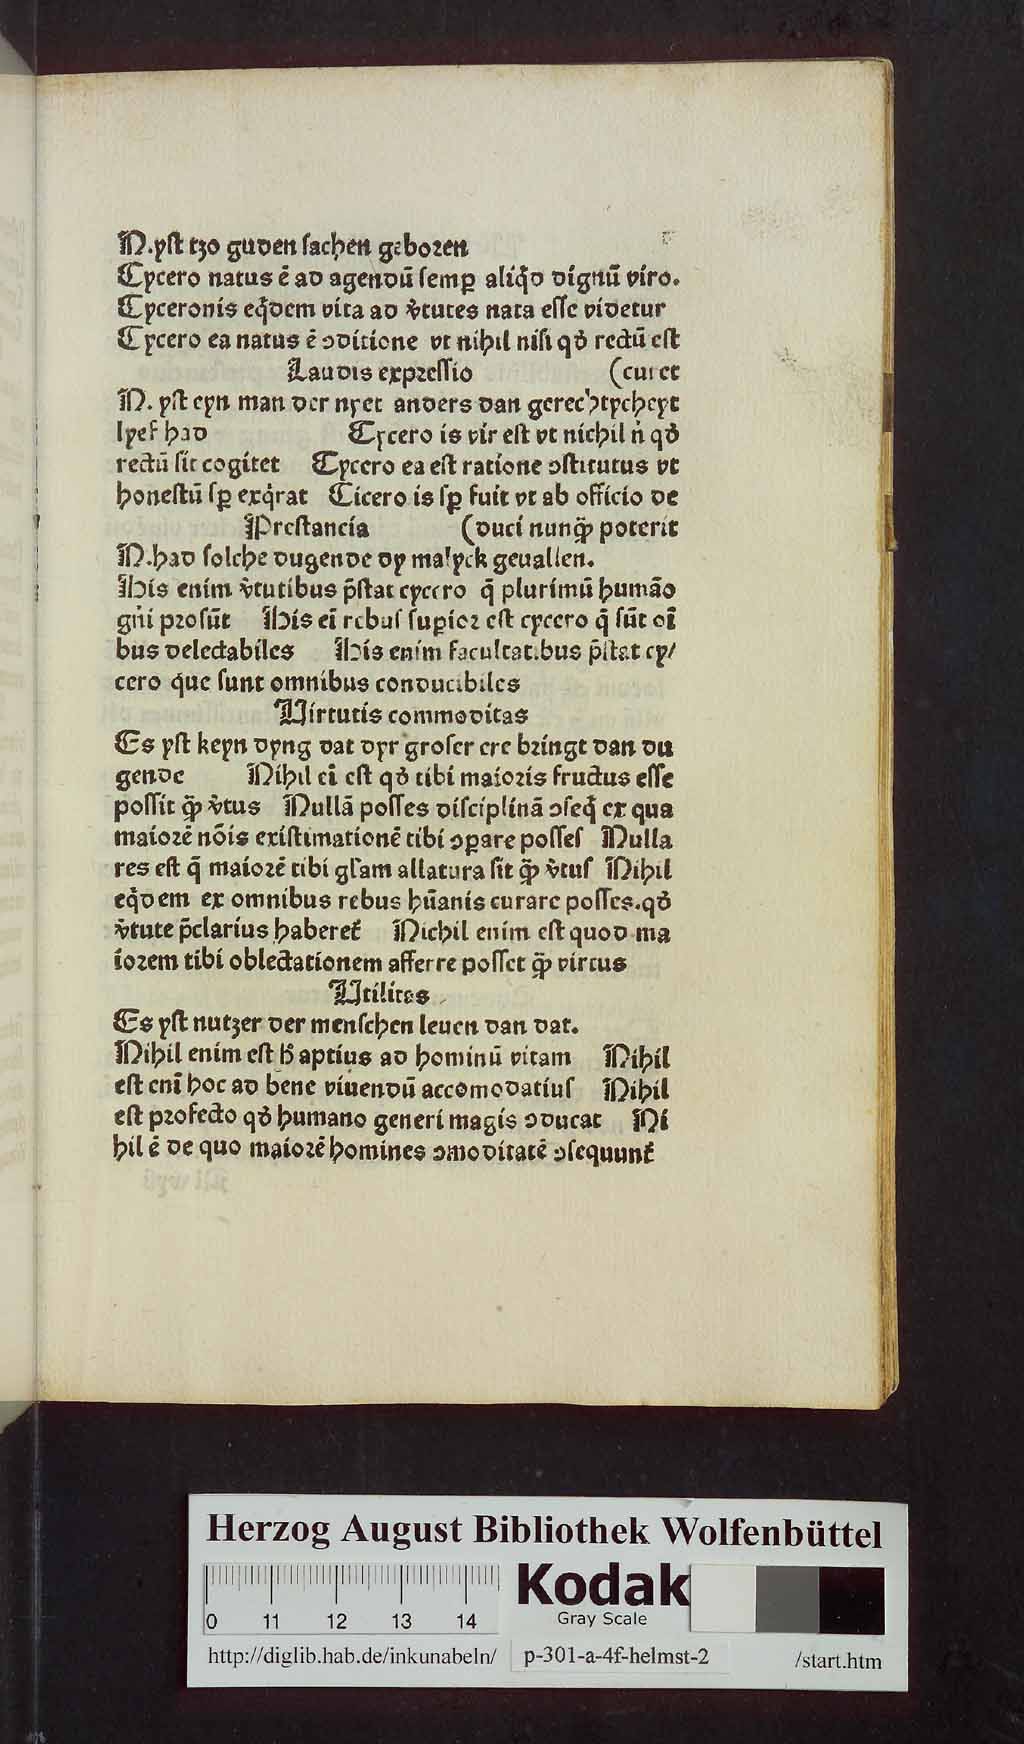 N.yſt tzo guden ſachen geboren
Cycero natus ē ad agendū ſemꝑ aliqͥd dignū viro.
Cyceronis eqͥdem vita ad v̓tutes nata eſſe videtur
Cycero ea natus ē ↄditione vt nihil niſi qđ rectū eſt
Laudis expreſſio (curet
N. yſt eyn man der nyet anders dan gerechtycheyt
lyef had Cycero is vir eſt vt nichil n̄ qđ
rectū ſit cogitet Cycero ea eſt ratione ↄſtitutus vt
honeſtū ſꝑ exqͥrat Cicero is ſꝑ fuit vt ab officio de
Preſtancia (duci nunqͣꝫ poterit
N.had ſolche dugende dy malyck geuallen.
His enim v̓tutibus p̄ſtat cycero q̄ plurimū humāo
gn̄i proſūt His ei rebuſ ſuꝑior eſt cycero q̄ ſūt oī
bus delectabiles His enim facultatibus p̄ſtat cy/
cero que ſunt omnibus conducibiles
Virtutis commoditas
Es yſt keyn dyng dat dyr groſer ere bringt dan du
gende Nihil eī eſt qđ tibi maioris fructus eſſe
poſſit qͣꝫ v̓tus Nullā poſſes diſciplinā ↄſeq̄ ex qua
maiorē nōis exiſtimationē tibi ↄꝑare poſſeſ Nulla
res eſt q̄ maiorē tibi gl̄am allatura ſit qͣꝫ v̓tuſ Nihil
eqͥdem ex omnibus rebus hūanis curare poſſes.qđ
v̓tute p̄clarius haberet᷑ Nichil enim eſt quod ma
iorem tibi oblectationem afferre poſſet qͣꝫ virtus
Utilitas
Es yſt nutzer der menſchen leuen dan dat.
Nihil enim eſt h̓ aptius ad hominū vitam Nihil
eſt enī hoc ad bene viuendū accomodatiuſ Nihil
eſt profecto qđ humano generi magis ↄducat Ni
hil ē de quo maiorē homines ↄmoditatē ↄſequunt᷑
Herzog August Bibliothek Wolfenbüttel
Kodak
Gray Scale
0 11 12 13 14
http://diglib.hab.de/inkunabeln/ p-301-a-4f-helmst-2 /start.htm